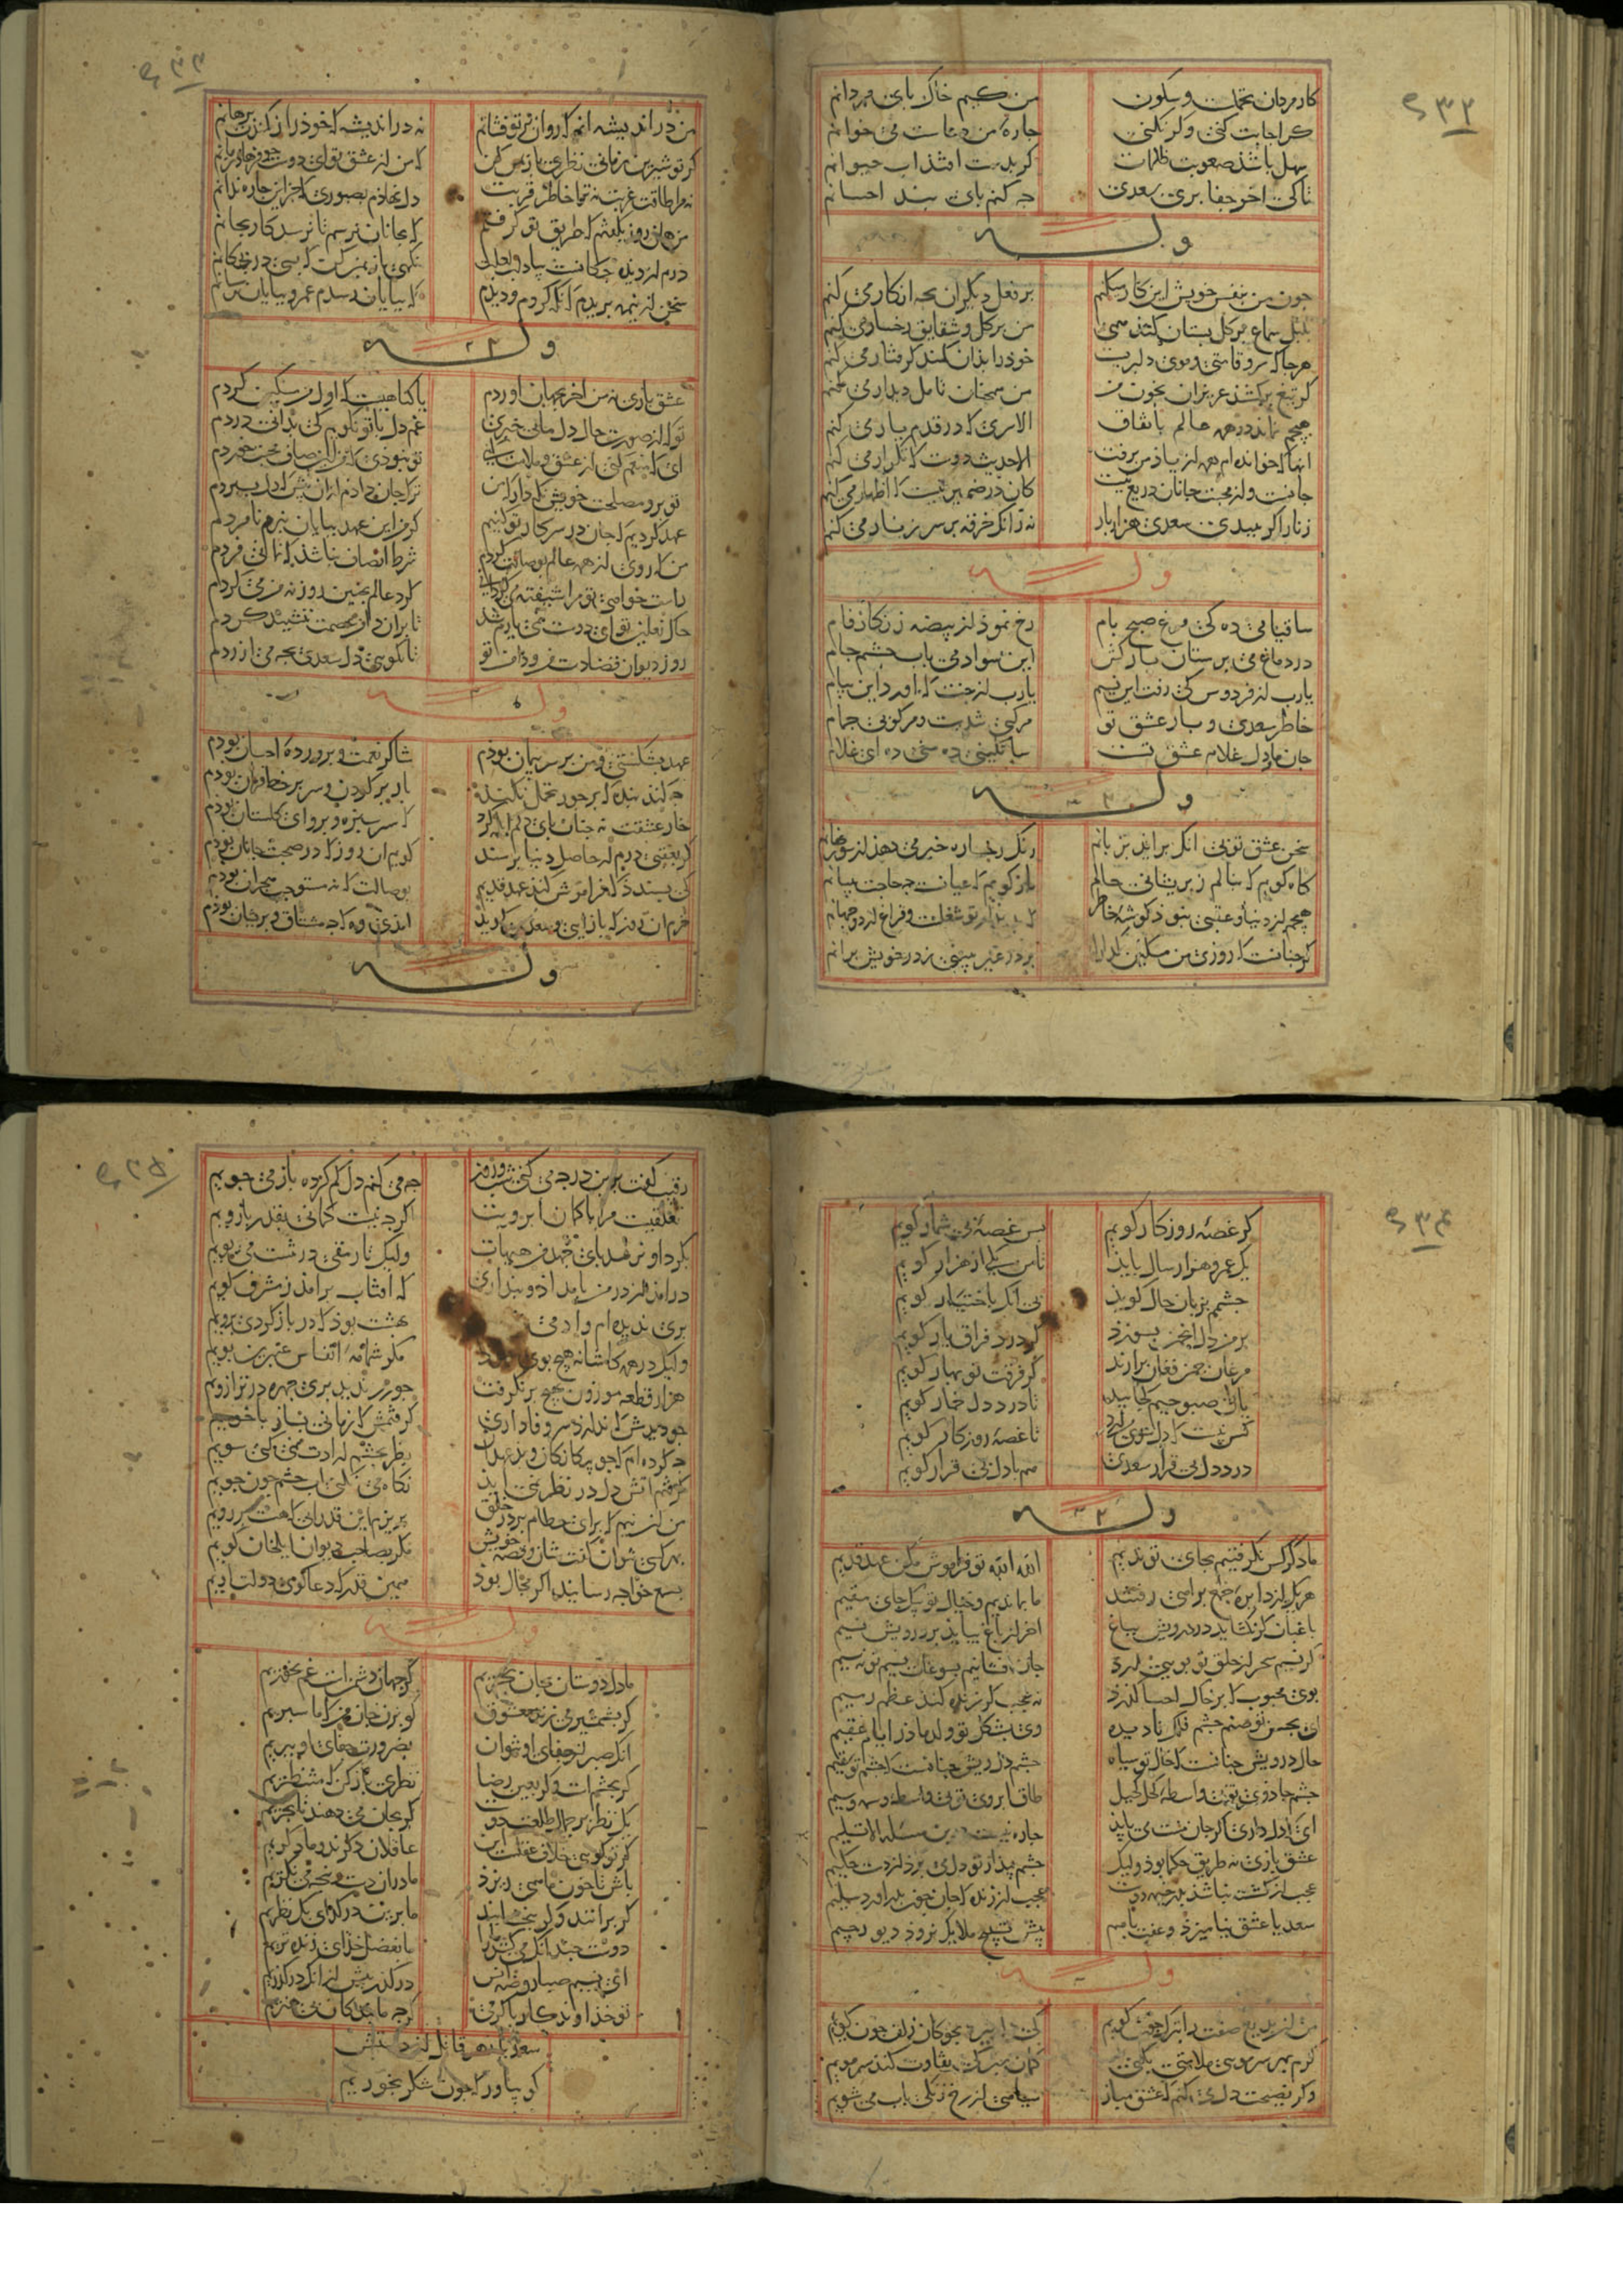 ۲۳۲
کار مردان تحملست و سکون من کیم خاک پای مردانم
کر اجابت کنی و کر نکنی چاره من دعاست می خوانم
سهل باشذ صعوبت ظلمات کر بدست افتذ اب حیوانم
تا کی اخر جفا بری سعدی چه کنم پای بند احسانم
وله
چون من بنفس خویش این کار میکنم بر فعل دیکران بچه انکار می کنم
بلبل سماع بر کل بستان کنذ همی من بر کل و شقایق رخسار می کنم
هر جا که سرو قامتی و موی دلبریست خود را بذان کمند کرفتار می کنم
کر تیغ برکشند عزیزان بخون من من همچنان تامل دیدار می کنم
هیچم نماند در همه عالم باتفاق الا سری که در قدم یار می کنم
انها که خوانده ام همه از یاذ من برفت الا حدیث دوست که تکرار می کنم
جانست و از محبت جانان دریغ نیست کان در ضمیر نیست که اظهار می کنم
زنار اکر ببندی سعدی هزار بار به زانکه خرقه بر سر زنار می کنم
وله
ساقیا می ده که مرغ صبح بام رخ نموذ از بیضه زنکار فام
در دماغ می پرستان بازکش این سواد می باب چشم جام
یارب از فردوس کی رفت این نسیم یارب از جنت که اورد این پیام
خاطر سعدی و بار عشق تو مرکبی تندست و مرکوبی جمام
جان ما و دل غلام عشق تست ساتکینی ده سنی ده ای غلام
وله
سخن عشق تو بی انکه براید بزبانم رنک رخساره خبر می دهذ از سوز نهانم
کاه کویم که بنالم ز پریشانی حالم باز کویم که عیانست چه حاجت ببیانم
هیچم از دنیا و عقبی نبوذ کوشه خاطر که بدیدار تو شغلست و فراغ از دو جهانم
کر چنانست که روزی من مسکین کدا را بر در غیر ببینی ز در خویش برانم
۲۳۳
من در اندیشه انم که روان بر تو فشانم نه در اندیشه که خوذ را ز کمندت برهانم
کر تو شیرین زمانی نظری باز بمن کن که من از عشق تو ای دوست چو فرهاد زمانم
نه مرا طاقت غربت نه ترا خاطر قربت دل نهاذم بصبوری که جز این چاره ندانم
من همان روز بکفتم که طریق تو کرفتم که بجانان نرسم تا نرسد کار بجانم
درم از دیده چکانست بیاد لب لعلت نکهی باز بمن کن که بسی در بچکانم
سخن از نیمه بریدم که نکه کردم و دیدم که بپایان رسدم عمر و بپایان نرسانم
وله
عشق بازی نه من اخر بجهان اوردم یا کناهیست که اول من مسکین کردم
تو که از صورت حال دل ما بی خبری غم دل با تو نکویم که ندانی دردم
ای که پندم دهی از عشق و ملامت کویی تو نبودی که من این جام محبت خوردم
تو برو مصلحت خویش نکه دار که من ترک جان دادم ازان پیش که دل بسپردم
عهد کردیم که جان در سر کار تو کنیم کر من این عهد بپایان نبرم نامردم
من که روی از همه عالم بوصالت کردم شرط انصاف نباشد که بمانی فردم
راست خواهی تو مرا شیفته می کردانی کرد عالم بچنین روز نه من می کردم
خاک نعلین تو ای دوست نمی یارم شد تا بران دامن عصمت ننشیند کردم
روز دیوان قضا دست من و دامن تو تا بکویی دل سعدی بچه می ازردم
وله
عهد بشکستی و من بر سر پیمان بوذم شاکر نعمت و پرورده احسان بوذم
چه کند بنده که بر جور تحمل نکند بار بر کردن و سر بر خط فرمان بوذم
خار عشقت نه چنان پای دلم ابله کرد که سر سبزه و پروای کلستان بوذم
کر بعقبی درم از حاصل دنیا پرسند کویم ان روز که در صحبت جانان بوذم
که پسندد که فراموش کند عهد قدیم بوصالت که نه مستوجب هجران بوذم
خرم ان روز که بازایی و سعدی کوید امذی وه که چه مشتاق و پریشان بوذم
وله
۲۳۴
کر غصه روزکار کویم بس غصه بی شمار کویم
یک عمر و هزار سال بایذ تا من یکی از هزار کویم
چشمم بزبان حال کویذ نی انکه باختیار کویم
بر من دل انجمن بسوزد کر درد فراق یار کویم
مرغان چمن فغان برارند کر فرقت نو بهار کویم
یاران صبوحیم کجایند تا درد دل خمار کویم
کس نیست که دل سوی من ارد تا غصه روزکار کویم
درد دل بی قرار سعدی هم با دل بی قرار کویم
وله
ما دکر کس نکرفتیم بجای تو ندیم الله الله تو فراموش مکن عهد قدیم
هر یک از دایره جمع براهی رفتند ما بماندیم و خیال تو بیک جای مقیم
باغبان کر نکشاید در درویش بباغ اخر از باغ بیایذ بر درویش نسیم
کر نسیم سحر از خلق تو بویی ارد جان فشانیم بسوغات نسیم تو نه سیم
بوی محبوب که بر خاک احبا کذرذ نه عجب کر زنده کند عظم رمیم
ای بحسن تو صنم چشم فلک نادیده وی بشکل تو ولد ماذر ایام عقیم
حال درویش چنانست که خال تو سیاه چشم دل ریش چنانست که چشم تو سقیم
چشم جاذوی تو بی واسطه کحل کحیل طاق ابروی تو بی واسطه وسمه وسیم
ای که دلداری اکر جان منت می بایذ چاره نیست درین مسئله الا تسلیم
عشق بازی نه طریق حکما بوذ ولیک چشم بیمار تو دل می برذ از دست حکیم
عجب از کشته نباشذ بدر خیمه دوست عجب از زنده که جان چون بدر اورد سلیم
سعدیا عشق نیامیزذ و عفت با هم پیش تسبیح ملایک نروذ دیو رجیم
وله
من از بدیع صفت را بترک چون کویم که دل ببرد بچوکان زلف چون کویم
کرم بهر سر مویی ملامتی بکنی کمان مبر که تفاوت کند سر مویم
وکر نصیحت دل می کنم که عشق مباز سیاهی از رخ زنکی باب می شویم
۲۳۵
رقیب کفت برین در چه می کنی شب و روز چه می کنم دل کم کرده باز می جویم
تعلقیست مرا با کمان ابرویت اکر چه نیست کمانی بقدر بازویم
بکرد او نرسد پای جهد من هیهات ولیک تا رمقی در تنست می پویم
درامذ از در من بامداذ و پنداری که افتاب برامذ ز مشرف کویم
پری ندیده ام و ادمی بهشت بود که در باز کردی بر رویم
ولیک در همه کاشانه هیچ بوی مکر شمامه انفاس عنبرین بویم
هزار قطعه موزون بهیچ برنکرفت چو زر ندید پری چهره در ترازویم
چو دیدمش که ندارذ سر وفا داری کرفتمش که زمانی بساز با خویم
چه کرده ام که چو بیکانکان و بدعهدان نظر بچشم ارادت نمی کنی سویم
کرفتم اتش دل در نظر نمی ایذ نکاه می نکنی اب چشم چون جویم
من ان نیم که برای حطام بر در خلق بریزم این قدر ابی که هست بر رویم
بهر کسی نتوان کفت شان و قصه خویش مکر بصاحب دیوان ایلخان کویم
بسمع خواجه رسانید اکر مجال بود همین قدر که دعاکوی دولت اویم
وله
ما دل دوستان بجان بخریم کر جهان دشمن است غم نخوریم
کر بشمشیر می زند معشوق کو بزن جان من که ما سپریم
انکه صبر از جفای او نتوان بضرورت جفای او ببریم
کر بخشم است و کر بعین رضا نظری باز کن که منتظریم
یک نظر بر جمال طلعت دوست کر بجان می دهند تا بخریم
کر تو کویی خلاف عقلست این عاقلان دکرند و ما دکریم
باش تا خون ما همی ریزذ ما دران دست و پنجه می نکریم
کر برانند و کر ببخشایند ما برین در کدای یک نظریم
دوست چندانکه می کشد ما را ما بفضل خذای زنده تریم
ای نسیم صبا ز روضه انس درکذر پیش از انکه درکذریم
تو خذاوندکار با کرمی کرچه ما بندکان بی هنریم
سعدیا زهر قاتل از دستش
کو بیاور که چون شکر بخوریم